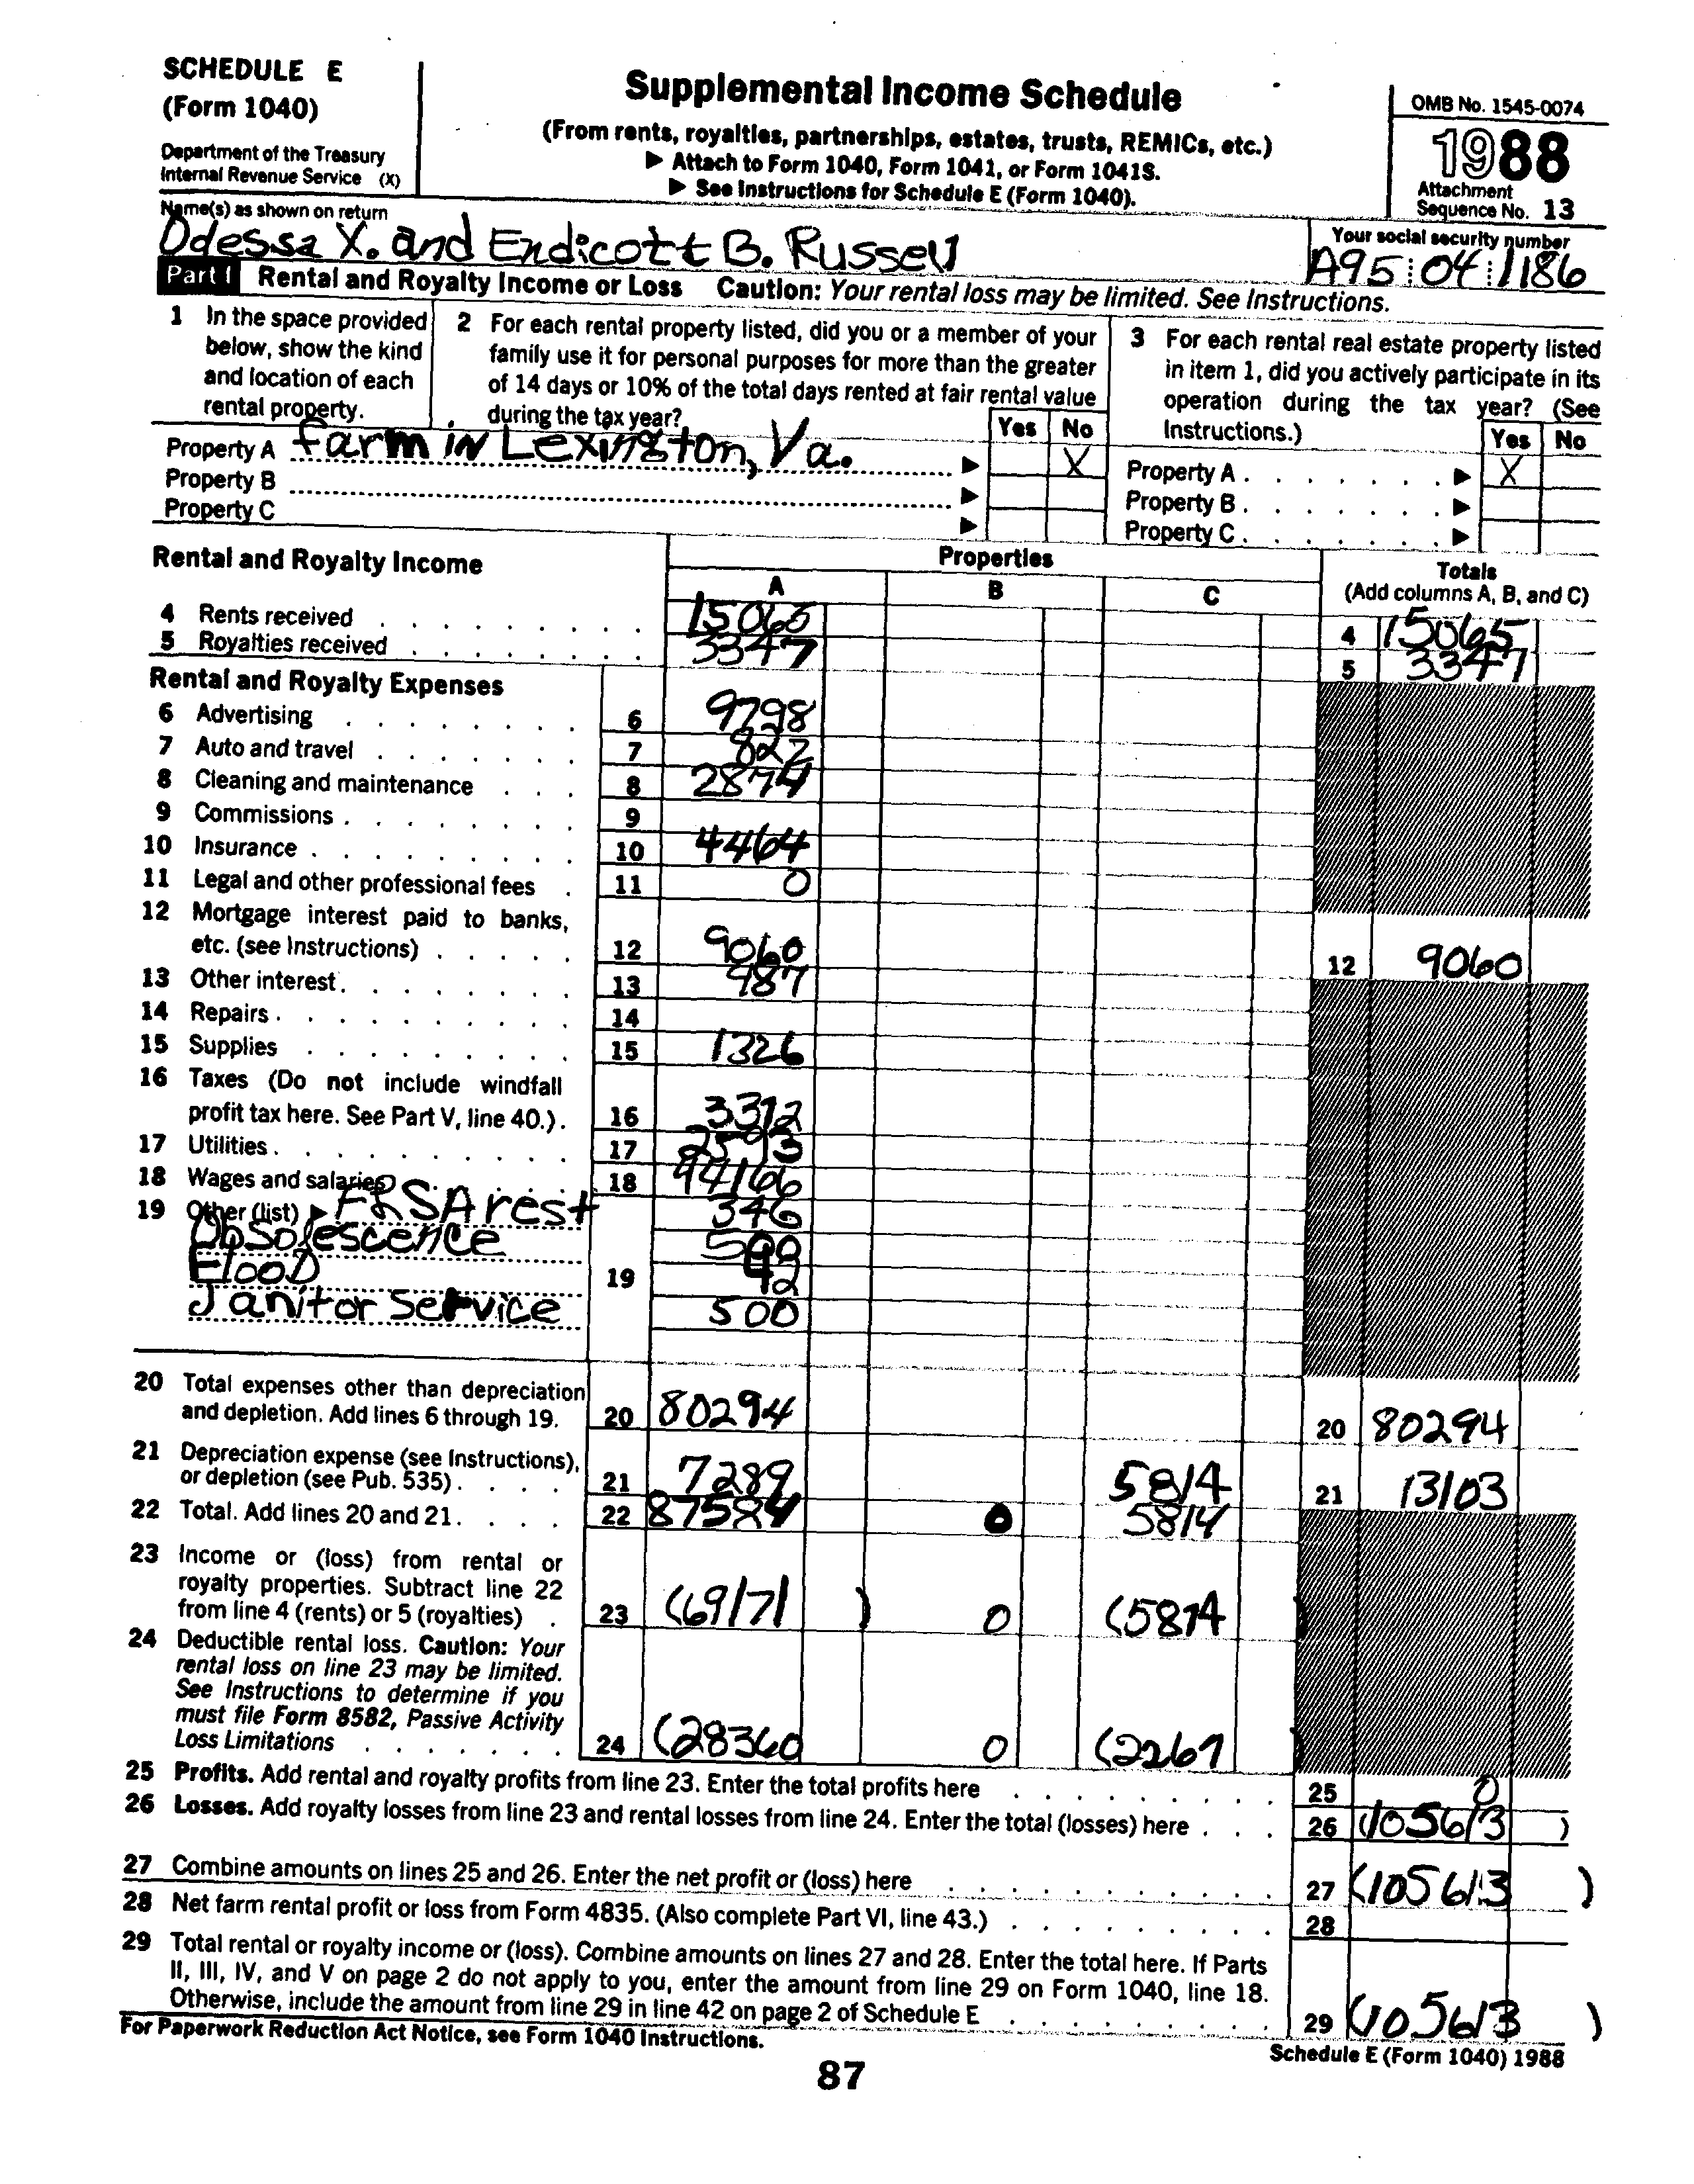 SCHEDULE E
(Form 1040)
Department of the Treasury
Internal Revenue Service (X)
Supplemental Income Schedule
(From rents, royalties, partnerships, estates, trusts, REMICs, etc.)
▶ Attach to Form 1040, Form 1041, or Form 1041S.
▶ See Instructions for Schedule E (Form 1040).
OMB No. 1545-0074
1988
Attachment
Sequence No. 13
Name(s) as shown on return
Odessa X. and Endicott B. Russell
Your social security number
A95 04 1186
Part I Rental and Royalty Income or Loss Caution: Your rental loss may be limited. See Instructions.
1 In the space provided
below, show the kind
and location of each
rental property.
2 For each rental property listed, did you or a member of your
family use it for personal purposes for more than the greater
of 14 days or 10% of the total days rented at fair rental value
during the tax year?
3 For each rental real estate property listed
in item 1, did you actively participate in its
operation during the tax year? (See
Instructions.)
Yes No
Yes No
Property A farm in Lexington, Va. ▶ X
Property B ▶
Property C ▶
Property A ▶ X
Property B ▶
Property C ▶
Rental and Royalty Income
Properties
A B C
Totals
(Add columns A, B, and C)
4 Rents received 15065 4 15065
5 Royalties received 3347 5 3347
Rental and Royalty Expenses
6 Advertising 6 9798
7 Auto and travel 7 822
8 Cleaning and maintenance 8 2874
9 Commissions 9
10 Insurance 10 4464
11 Legal and other professional fees 11 0
12 Mortgage interest paid to banks,
etc. (see Instructions) 12 9060 12 9060
13 Other interest 13 987
14 Repairs 14
15 Supplies 15 1326
16 Taxes (Do not include windfall
profit tax here. See Part V, line 40.) 16 3312
17 Utilities 17
18 Wages and salaries 18 44166
19 Other (list) ▶ 346
Obsolescence
Flood 19 42
Janitor Service 500
20 Total expenses other than depreciation
and depletion. Add lines 6 through 19. 20 80294 20 80294
21 Depreciation expense (see Instructions),
or depletion (see Pub. 535) 21 7289 5814 21 13103
22 Total. Add lines 20 and 21 22 87584 0 5814
23 Income or (loss) from rental or
royalty properties. Subtract line 22
from line 4 (rents) or 5 (royalties) 23 (69171 ) 0 (5814 )
24 Deductible rental loss. Caution: Your
rental loss on line 23 may be limited.
See Instructions to determine if you
must file Form 8582, Passive Activity
Loss Limitations 24 (28360 0 (2267 )
25 Profits. Add rental and royalty profits from line 23. Enter the total profits here 25 0
26 Losses. Add royalty losses from line 23 and rental losses from line 24. Enter the total (losses) here 26 (105613 )
27 Combine amounts on lines 25 and 26. Enter the net profit or (loss) here 27 (105613 )
28 Net farm rental profit or loss from Form 4835. (Also complete Part VI, line 43.) 28
29 Total rental or royalty income or (loss). Combine amounts on lines 27 and 28. Enter the total here. If Parts
II, III, IV, and V on page 2 do not apply to you, enter the amount from line 29 on Form 1040, line 18.
Otherwise, include the amount from line 29 in line 42 on page 2 of Schedule E 29 (105613 )
For Paperwork Reduction Act Notice, see Form 1040 Instructions.
Schedule E (Form 1040) 1988
87